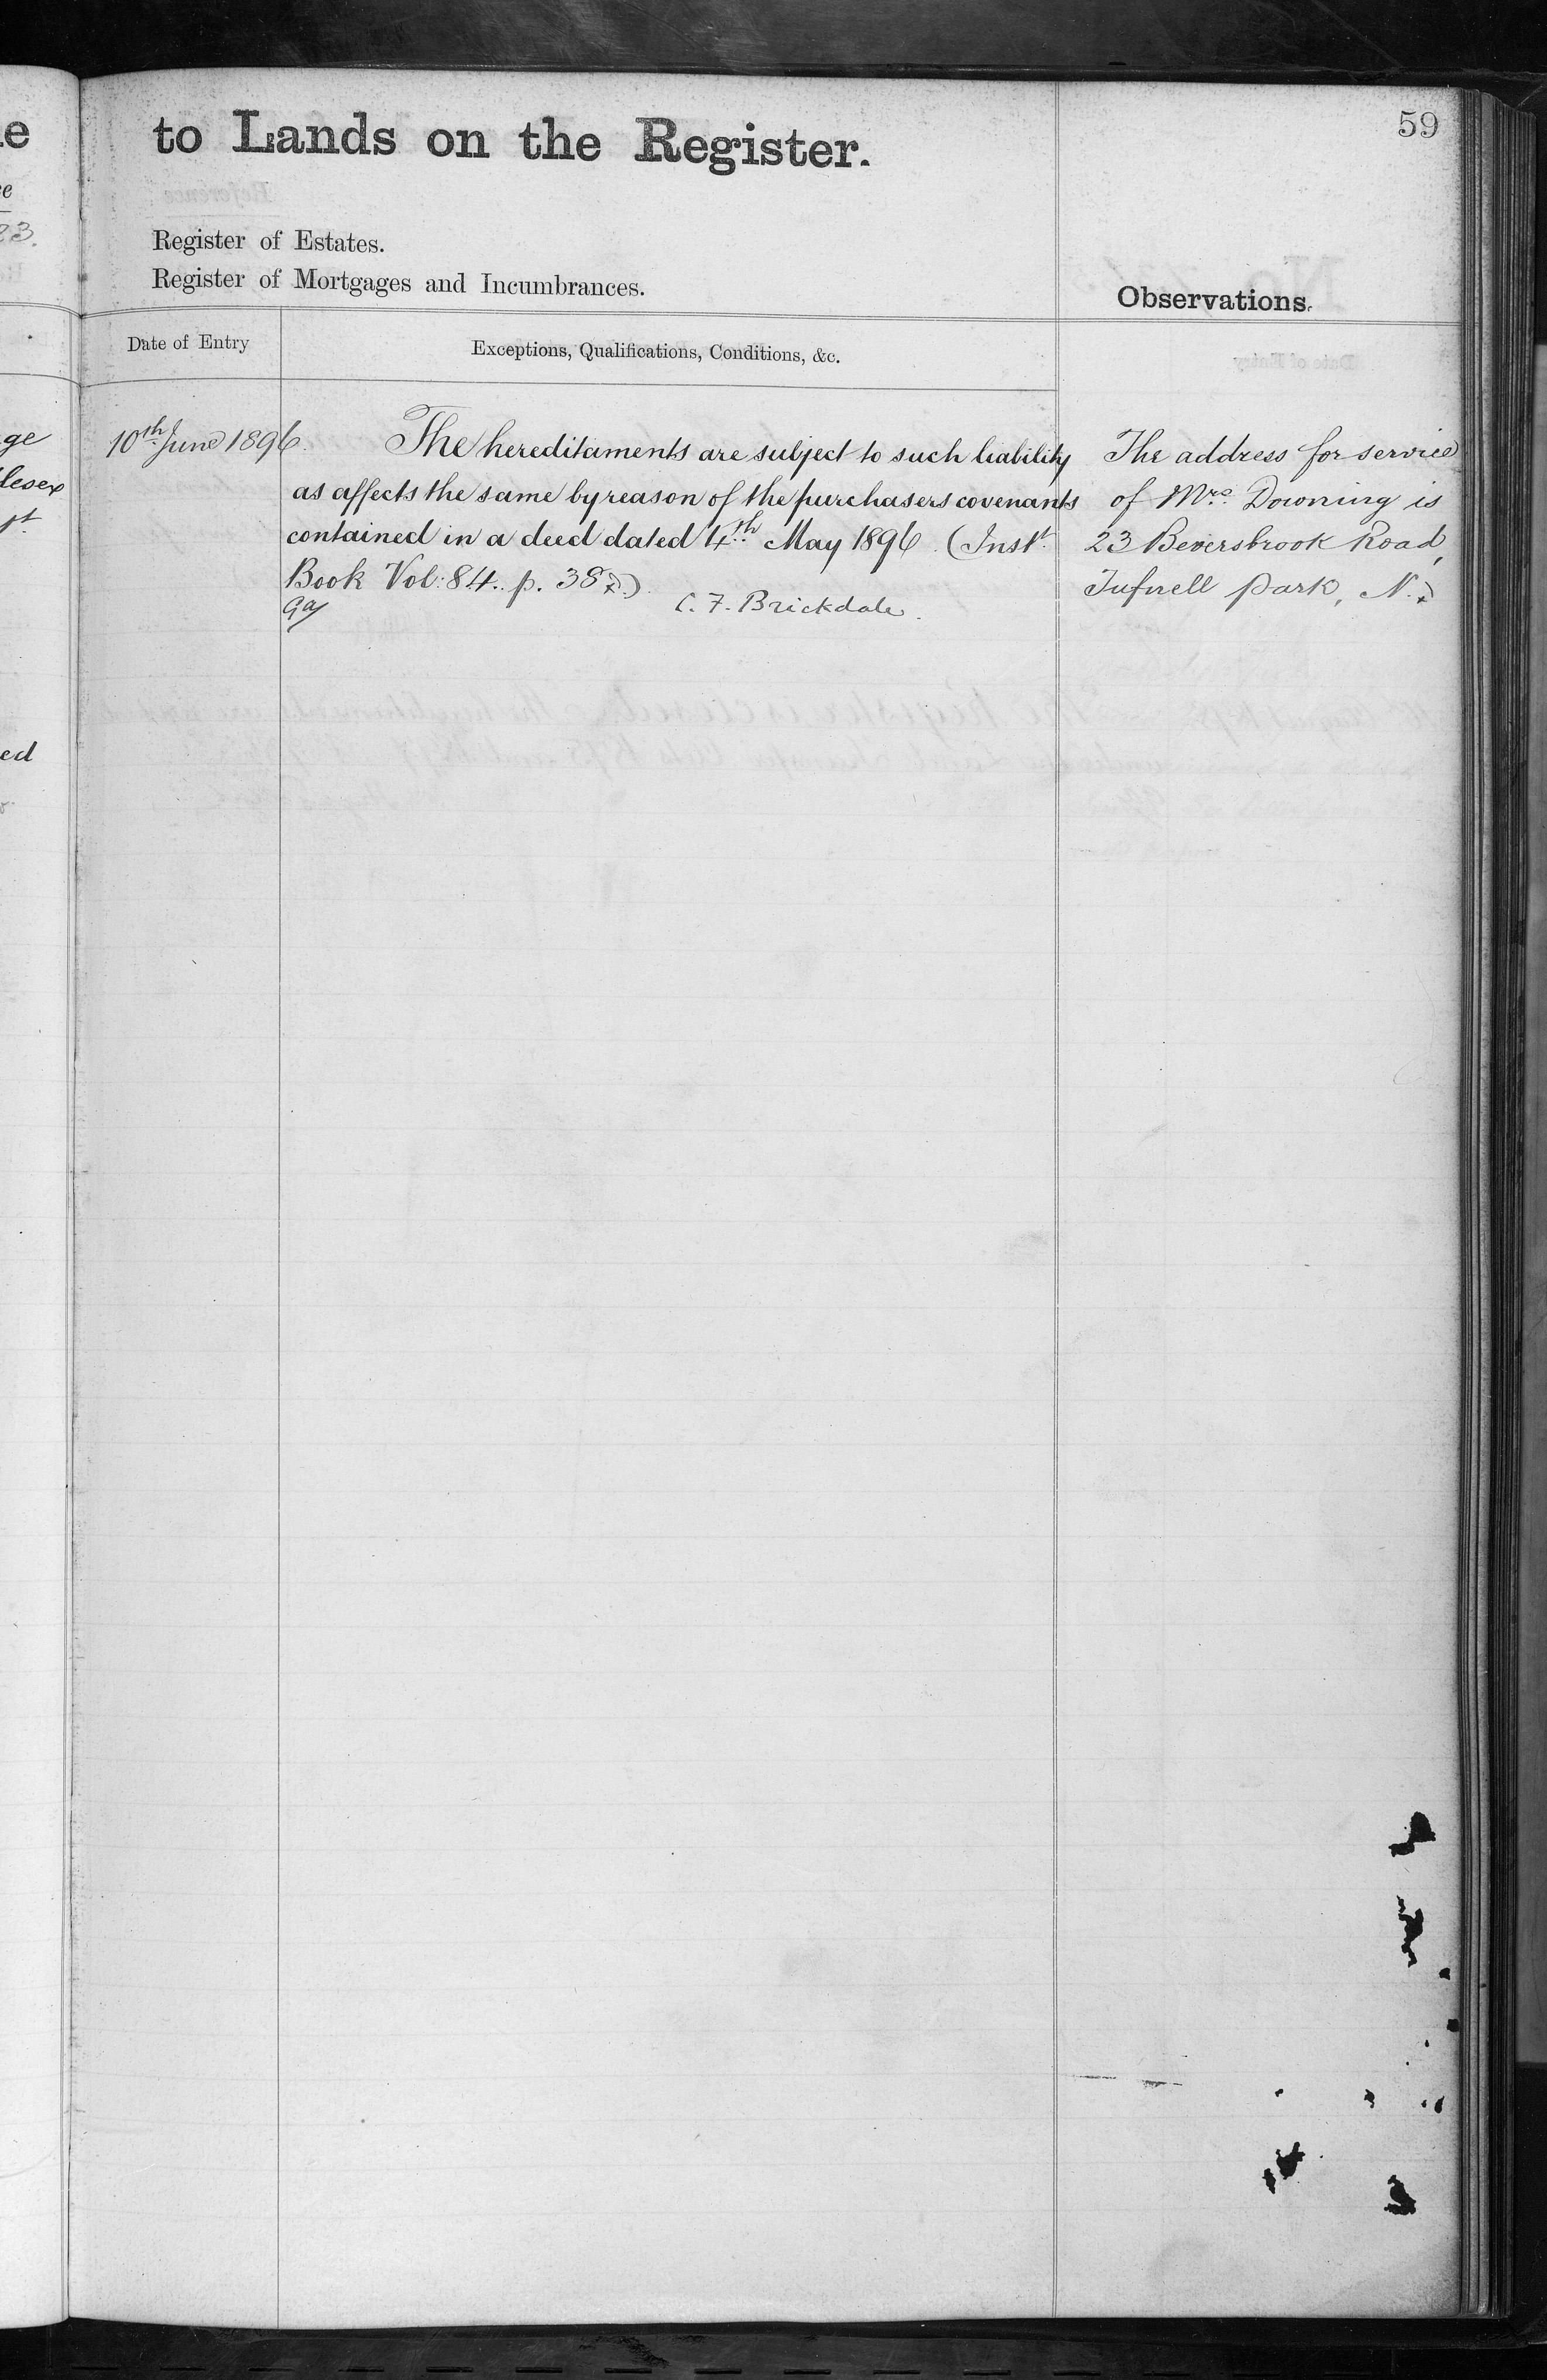 59
to Lands on the Register.
Register of Estates.
Register of Mortgages and Incumbrances.
Observations.
Date of Entry
Exceptions, Qualifications, Conditions, &c.
10th June 1896.
The hereditaments are subject to such liability
as affects the same by reason of the purchasers covenants
contained in a deed dated 4th May 1896. (Inst.
Book Vol: 84. p. 38.)
C. F. Brickdale.
The address for service
of Mrs. Downing is
23 Beversbrook Road,
Tufnell Park, N.
ge
ed